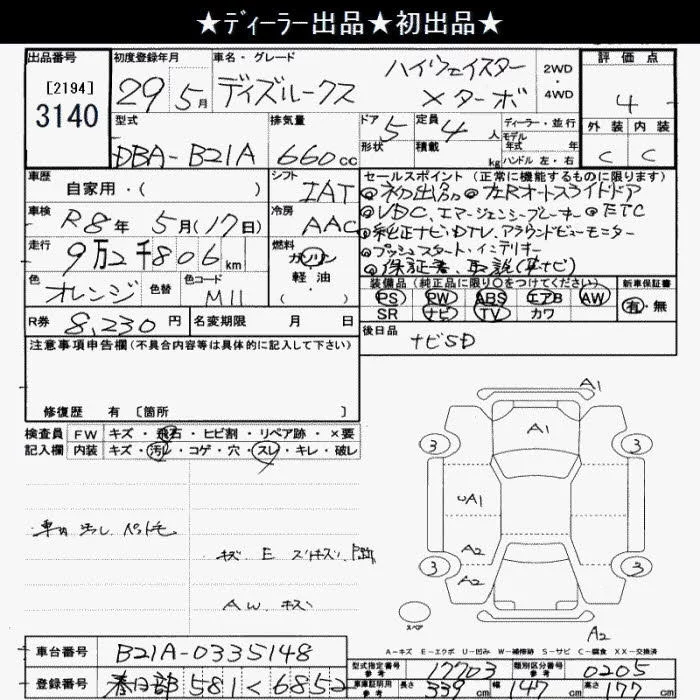 ★ディーラー出品★初出品★
出品番号
[2194]
3140
初度登録年月
29 5月
車名・グレード
ディズルークス
ハイウェイスター
Xターボ
2WD
・
4WD
評価点
4
外装 内装
C C
型式
DBA-B21A
排気量
660cc
ドア 5
形状
定員 4人
積載 kg
ディーラー・並行
モデル
年式 年
ハンドル 左・右
車歴
自家用・( )
シフト
IAT
車検
R8年 5月(17日)
冷房
AAC
走行
9万2千806km
燃料
ガソリン
軽・油
( ・ )
色
オレンジ
色替
色コード
M11
セールスポイント (正常に機能するものに限ります)
◎初出品 ◎左Rオートスライドドア
◎VDC、エマージェンシーブレーキ ◎ETC
◎純正ナビ・DTV、アラウンドビューモニター
◎プッシュスタート・インテリキー
◎保証書、取説(車ナビ)
装備品 (純正品に限り○をつけてください)
PS PW ABS エアB AW
SR ナビ TV カワ
新車保証書
有・無
R券 8,230円
名変期限 月 日
後日品
ナビSD
注意事項申告欄(不具合内容等は具体的に記入して下さい)
修復歴 有 [箇所 ]
検査員 FW キズ・飛石・ヒビ割・リペア跡・×要
記入欄 内装 キズ・汚れ・コゲ・穴・スレ・キレ・破レ
車内 汚レ ペット毛
キズ E スリキズ
AW キズ
A1
A1
3 3
UA1
A2
3 3
A2
スペア
A2
A-キズ E-エクボ U-凹み W-補修跡 S-サビ C-腐食 XX-交換済
車台番号 B21A-0335148
登録番号 春日部 581 く 6852
型式指定番号
参考 17703
類別区分番号
参考 0205
車庫証明用
参考
長さ 339cm 幅 147cm 高さ 177cm